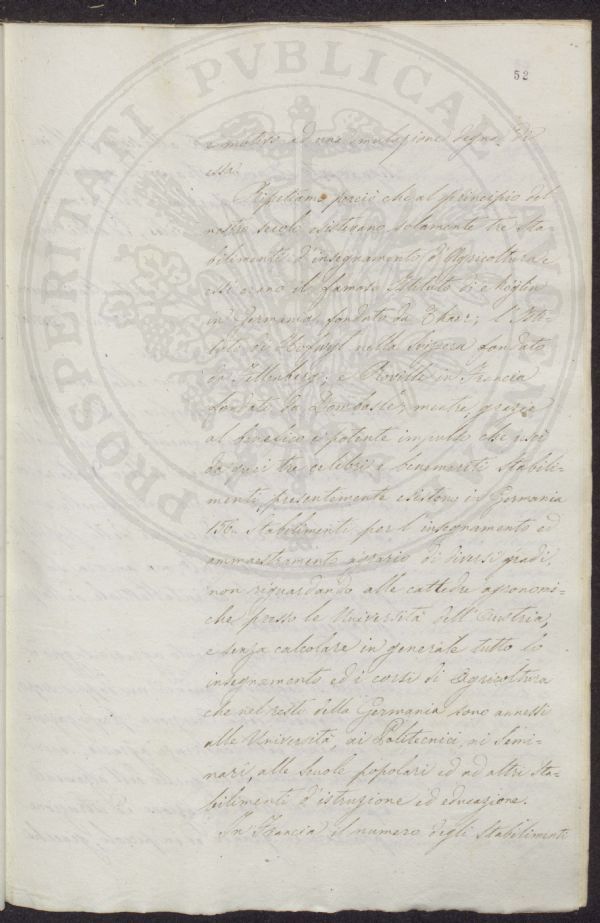 52
PROSPERITATI PVBLICAE AVGENDAE
e motivo ad una emulazione degna di
essa.
Ripetiamo perciò che al principio del
nostro secolo esistevano solamente tre sta=
bilimenti d'insegnamento d'Agricoltura e
essi erano il famoso Istituto di Möglin
in Germania, fondato da Thaer; l'Isti=
tuto di Hofwyl nella Svizzera fondato
da Fellenberg; e Roville in Francia
fondato da Dombasle; mentre, grazie
al benefico e potente impulso che uscì
da quei tre celebri e benemeriti stabili=
menti, presentemente esistono in Germania
156. stabilimenti per l'insegnamento ed
ammaestramento agrario di diversi gradi,
non riguardando alle cattedre agronomi=
che presso le Università dell'Austria,
e senza calcolare in generale tutto lo
insegnamento ed i corsi di Agricoltura
che nel resto della Germania sono annessi
alle Università, ai Politecnici, ai Semi=
narî, alle scuole popolari ed ad altri sta=
bilimenti d'istruzione ed educazione.
In Francia il numero degli Stabilimenti